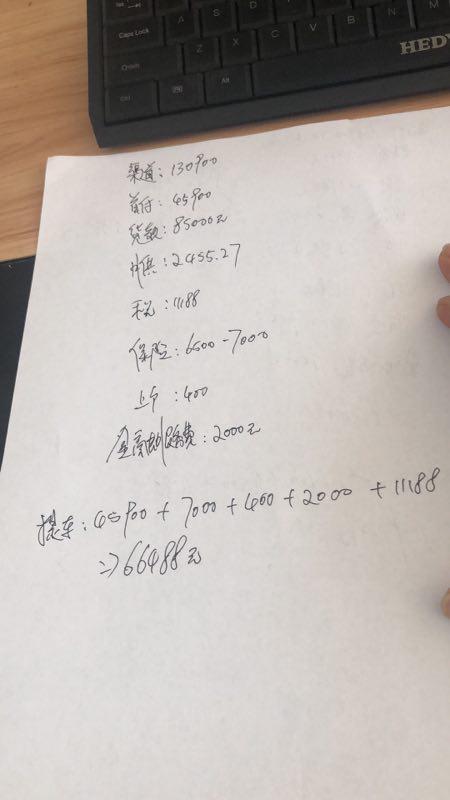 Caps Lock
A
S
D
F
G
Z
X
C
V
B
N
M
Alt
Ctrl
HEDY
渠道：130900
首付：45900
贷款：85000元
月供：2455.27
税：11188
保险：6500-7000
上户：400
金融服务费：2000元
提车：45900+7000+400+2000+11188
=>66488元